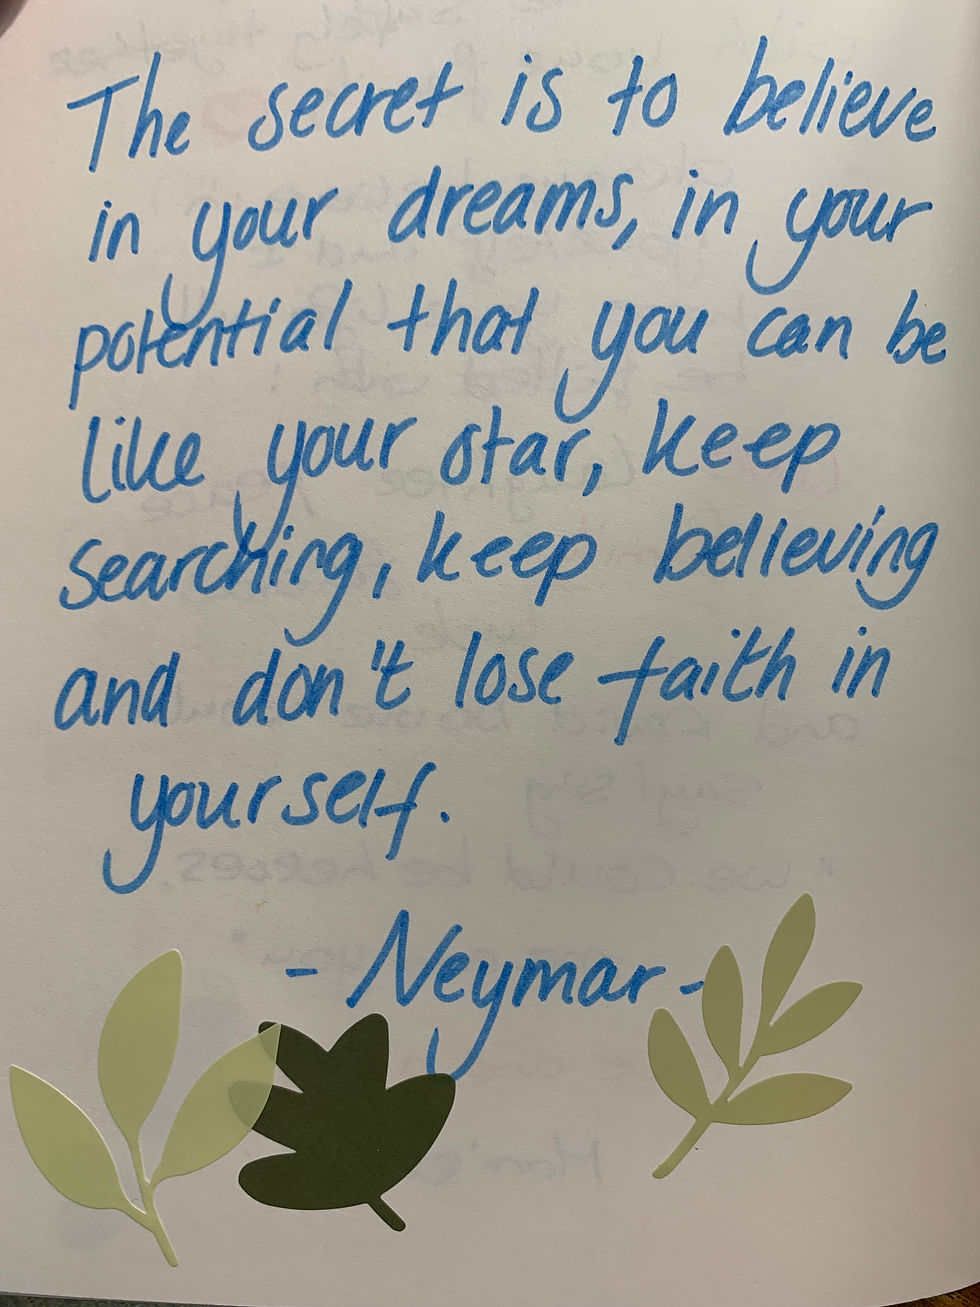 The secret is to believe
in your dreams, in your
potential that you can be
like your star, keep
searching, keep believing
and don't lose faith in
yourself.
- Neymar -